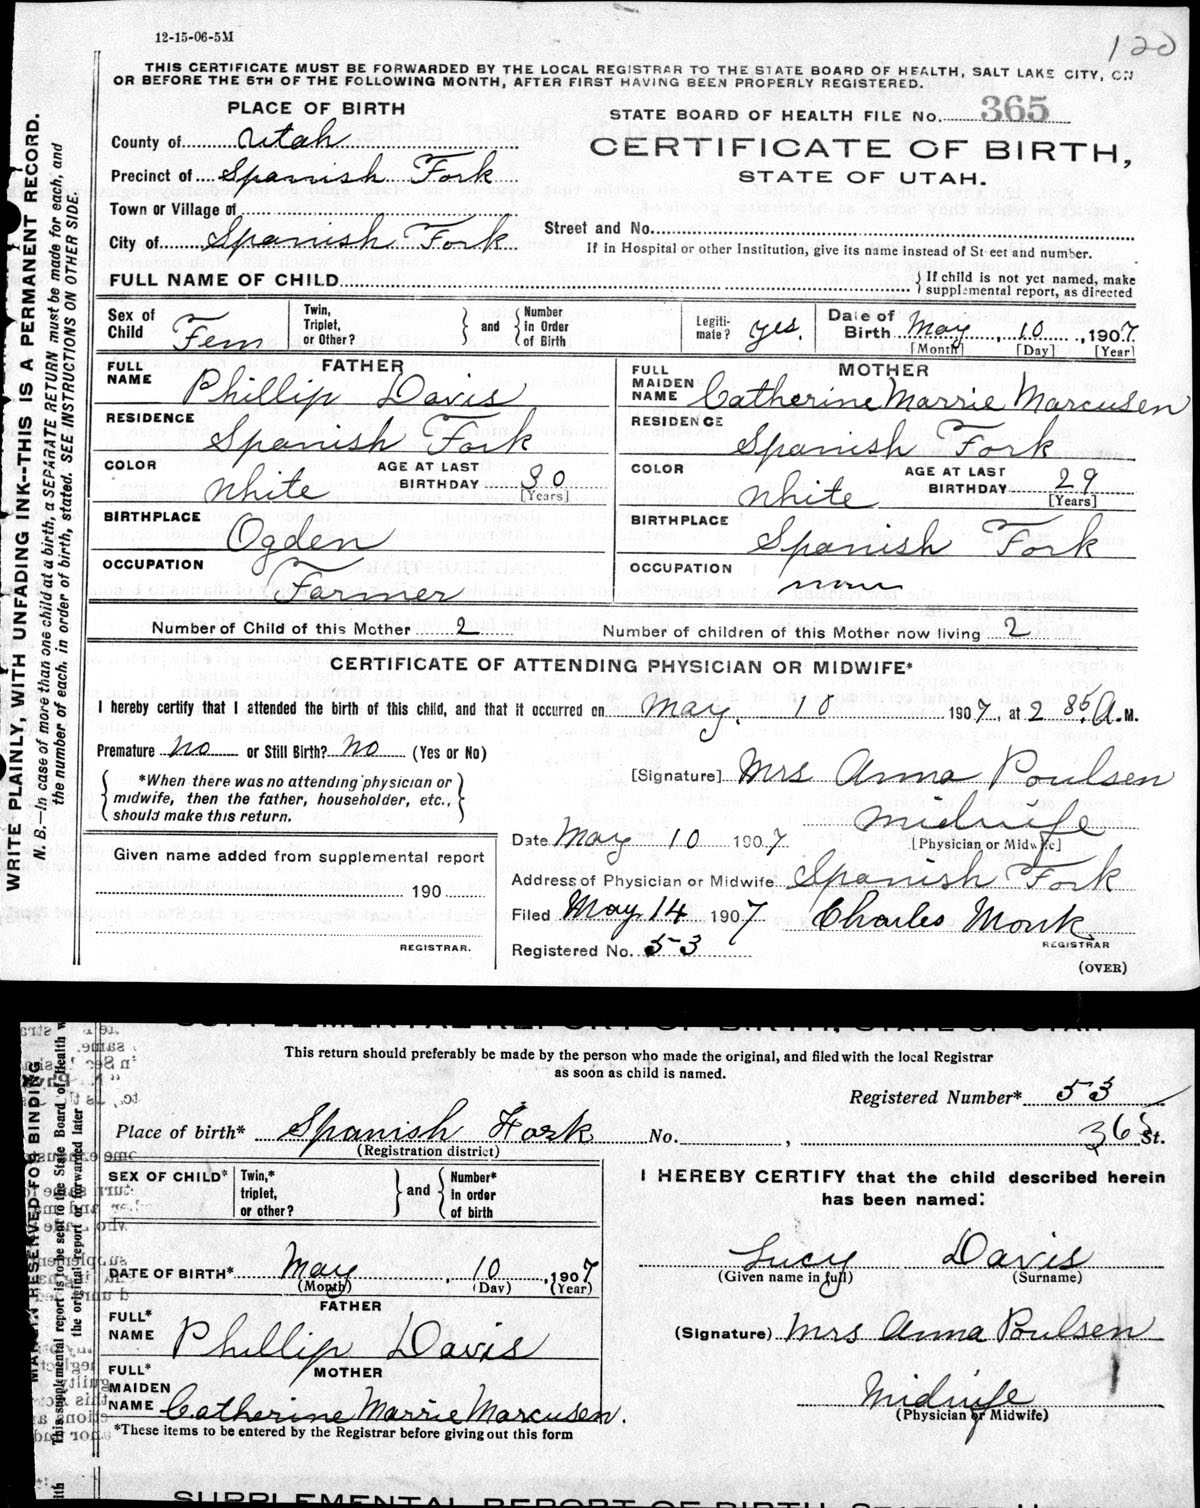 12-15-06-5M
120
THIS CERTIFICATE MUST BE FORWARDED BY THE LOCAL REGISTRAR TO THE STATE BOARD OF HEALTH, SALT LAKE CITY, ON
OR BEFORE THE 5TH OF THE FOLLOWING MONTH, AFTER FIRST HAVING BEEN PROPERLY REGISTERED.
WRITE PLAINLY, WITH UNFADING INK--THIS IS A PERMANENT RECORD.
N. B.—In case of more than one child at a birth, a SEPARATE RETURN must be made for each, and
the number of each, in order of birth, stated. SEE INSTRUCTIONS ON OTHER SIDE.
PLACE OF BIRTH
County of Utah
Precinct of Spanish Fork
Town or Village of
City of Spanish Fork
STATE BOARD OF HEALTH FILE No. 365
CERTIFICATE OF BIRTH,
STATE OF UTAH.
Street and No.
If in Hospital or other Institution, give its name instead of Street and number.
FULL NAME OF CHILD
If child is not yet named, make
supplemental report, as directed
Sex of Child Fem
Twin, Triplet, or Other?
and
Number in Order of Birth
Legitimate? yes.
Date of Birth May 10, 1907
[Month] [Day] [Year]
FATHER
FULL NAME Phillip Davis
RESIDENCE Spanish Fork
COLOR White
AGE AT LAST BIRTHDAY 30
[Years]
BIRTHPLACE Ogden
OCCUPATION Farmer
MOTHER
FULL MAIDEN NAME Catherine Marrie Marcusen
RESIDENCE Spanish Fork
COLOR White
AGE AT LAST BIRTHDAY 29
[Years]
BIRTHPLACE Spanish Fork
OCCUPATION
Number of Child of this Mother 2
Number of children of this Mother now living 2
CERTIFICATE OF ATTENDING PHYSICIAN OR MIDWIFE*
I hereby certify that I attended the birth of this child, and that it occurred on May. 10 1907, at 2 35 A. M.
Premature no or Still Birth? No (Yes or No)
*When there was no attending physician or
midwife, then the father, householder, etc.,
should make this return.
[Signature] Mrs Anna Poulsen
Midwife
[Physician or Midwife]
Date May 10 1907.
Address of Physician or Midwife Spanish Fork
Filed May 14 1907 Charles Monk
REGISTRAR
Registered No. 53
(OVER)
Given name added from supplemental report
190
REGISTRAR.
SUPPLEMENTAL REPORT OF BIRTH, STATE OF UTAH
This return should preferably be made by the person who made the original, and filed with the local Registrar
as soon as child is named.
Registered Number* 53
Place of birth* Spanish Fork No. , 365 St.
(Registration district)
MARGIN RESERVED FOR BINDING
This supplemental report is to be sent to the State Board of Health w
the original report or forwarded later
SEX OF CHILD*
Twin,* triplet, or other?
and
Number* in order of birth
DATE OF BIRTH* May, 10, 1907
(Month) (Day) (Year)
FATHER
FULL* NAME Phillip Davis
MOTHER
FULL* MAIDEN NAME Catherine Marrie Marcusen.
*These items to be entered by the Registrar before giving out this form
I HEREBY CERTIFY that the child described herein
has been named:
Lucy Davis
(Given name in full) (Surname)
(Signature) Mrs Anna Poulsen
Midwife
(Physician or Midwife)
SUPPLEMENTAL REPORT OF BIRTH